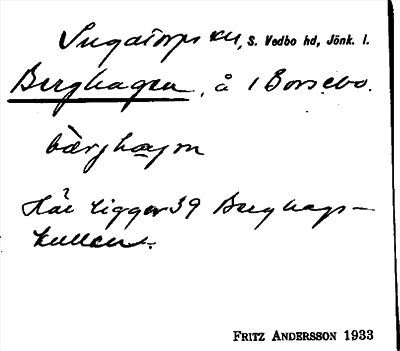 Ingatorps sn, S. Vedbo hd, Jönk. l.
Berghagen, å 1 Borsebo.
bærjhagɷn
Här ligger 39 Berghags-
kullen.
FRITZ ANDERSSON 1933